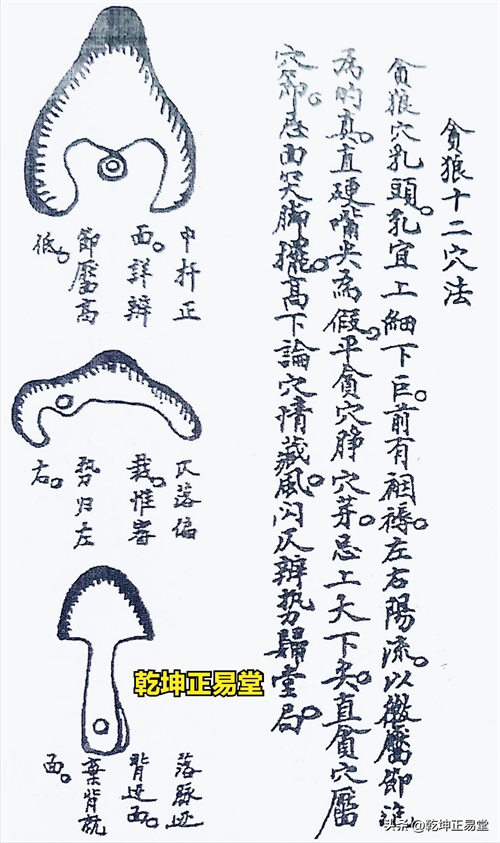 貪狼十二穴法
貪狼穴乳頭。乳宜上細下巨。前有裀褥。左右陽流。以微靨節
為的真。直硬嘴尖為假。平貪穴脖穴芽。忌上大下尖。直貪穴靨
穴節。忌面哭脚擺。高下論穴情藏風。閃仄辨势歸堂局。
中扦正
面。詳辨
節靨高
低。
仄落偏
栽。惟審
势归左
右。
落脉迹
背迹面。
棄背就
面。
乾坤正易堂
头条 @乾坤正易堂